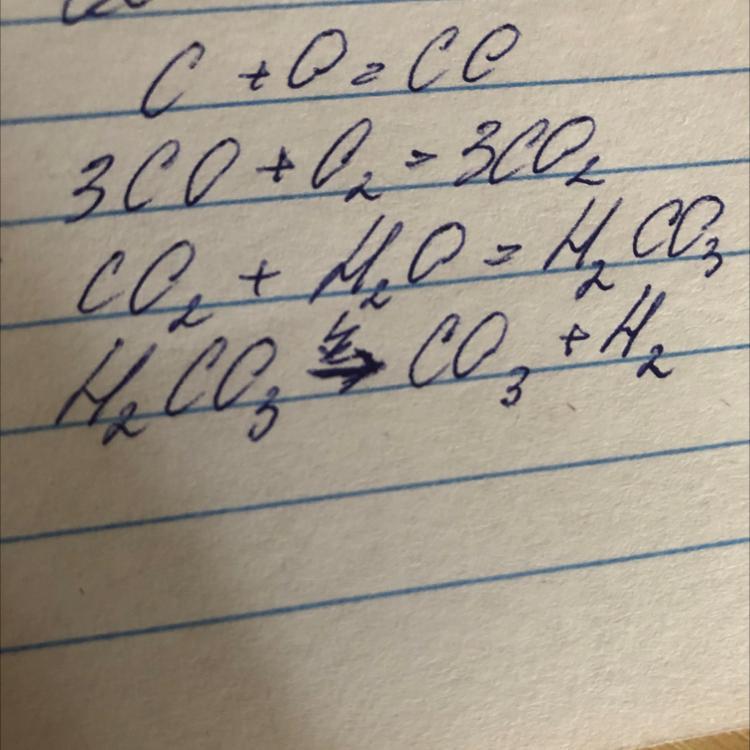 C + O = CO
3CO + O₂ = 3CO₂
CO₂ + H₂O = H₂CO₃
H₂CO₃ → CO₃ + H₂